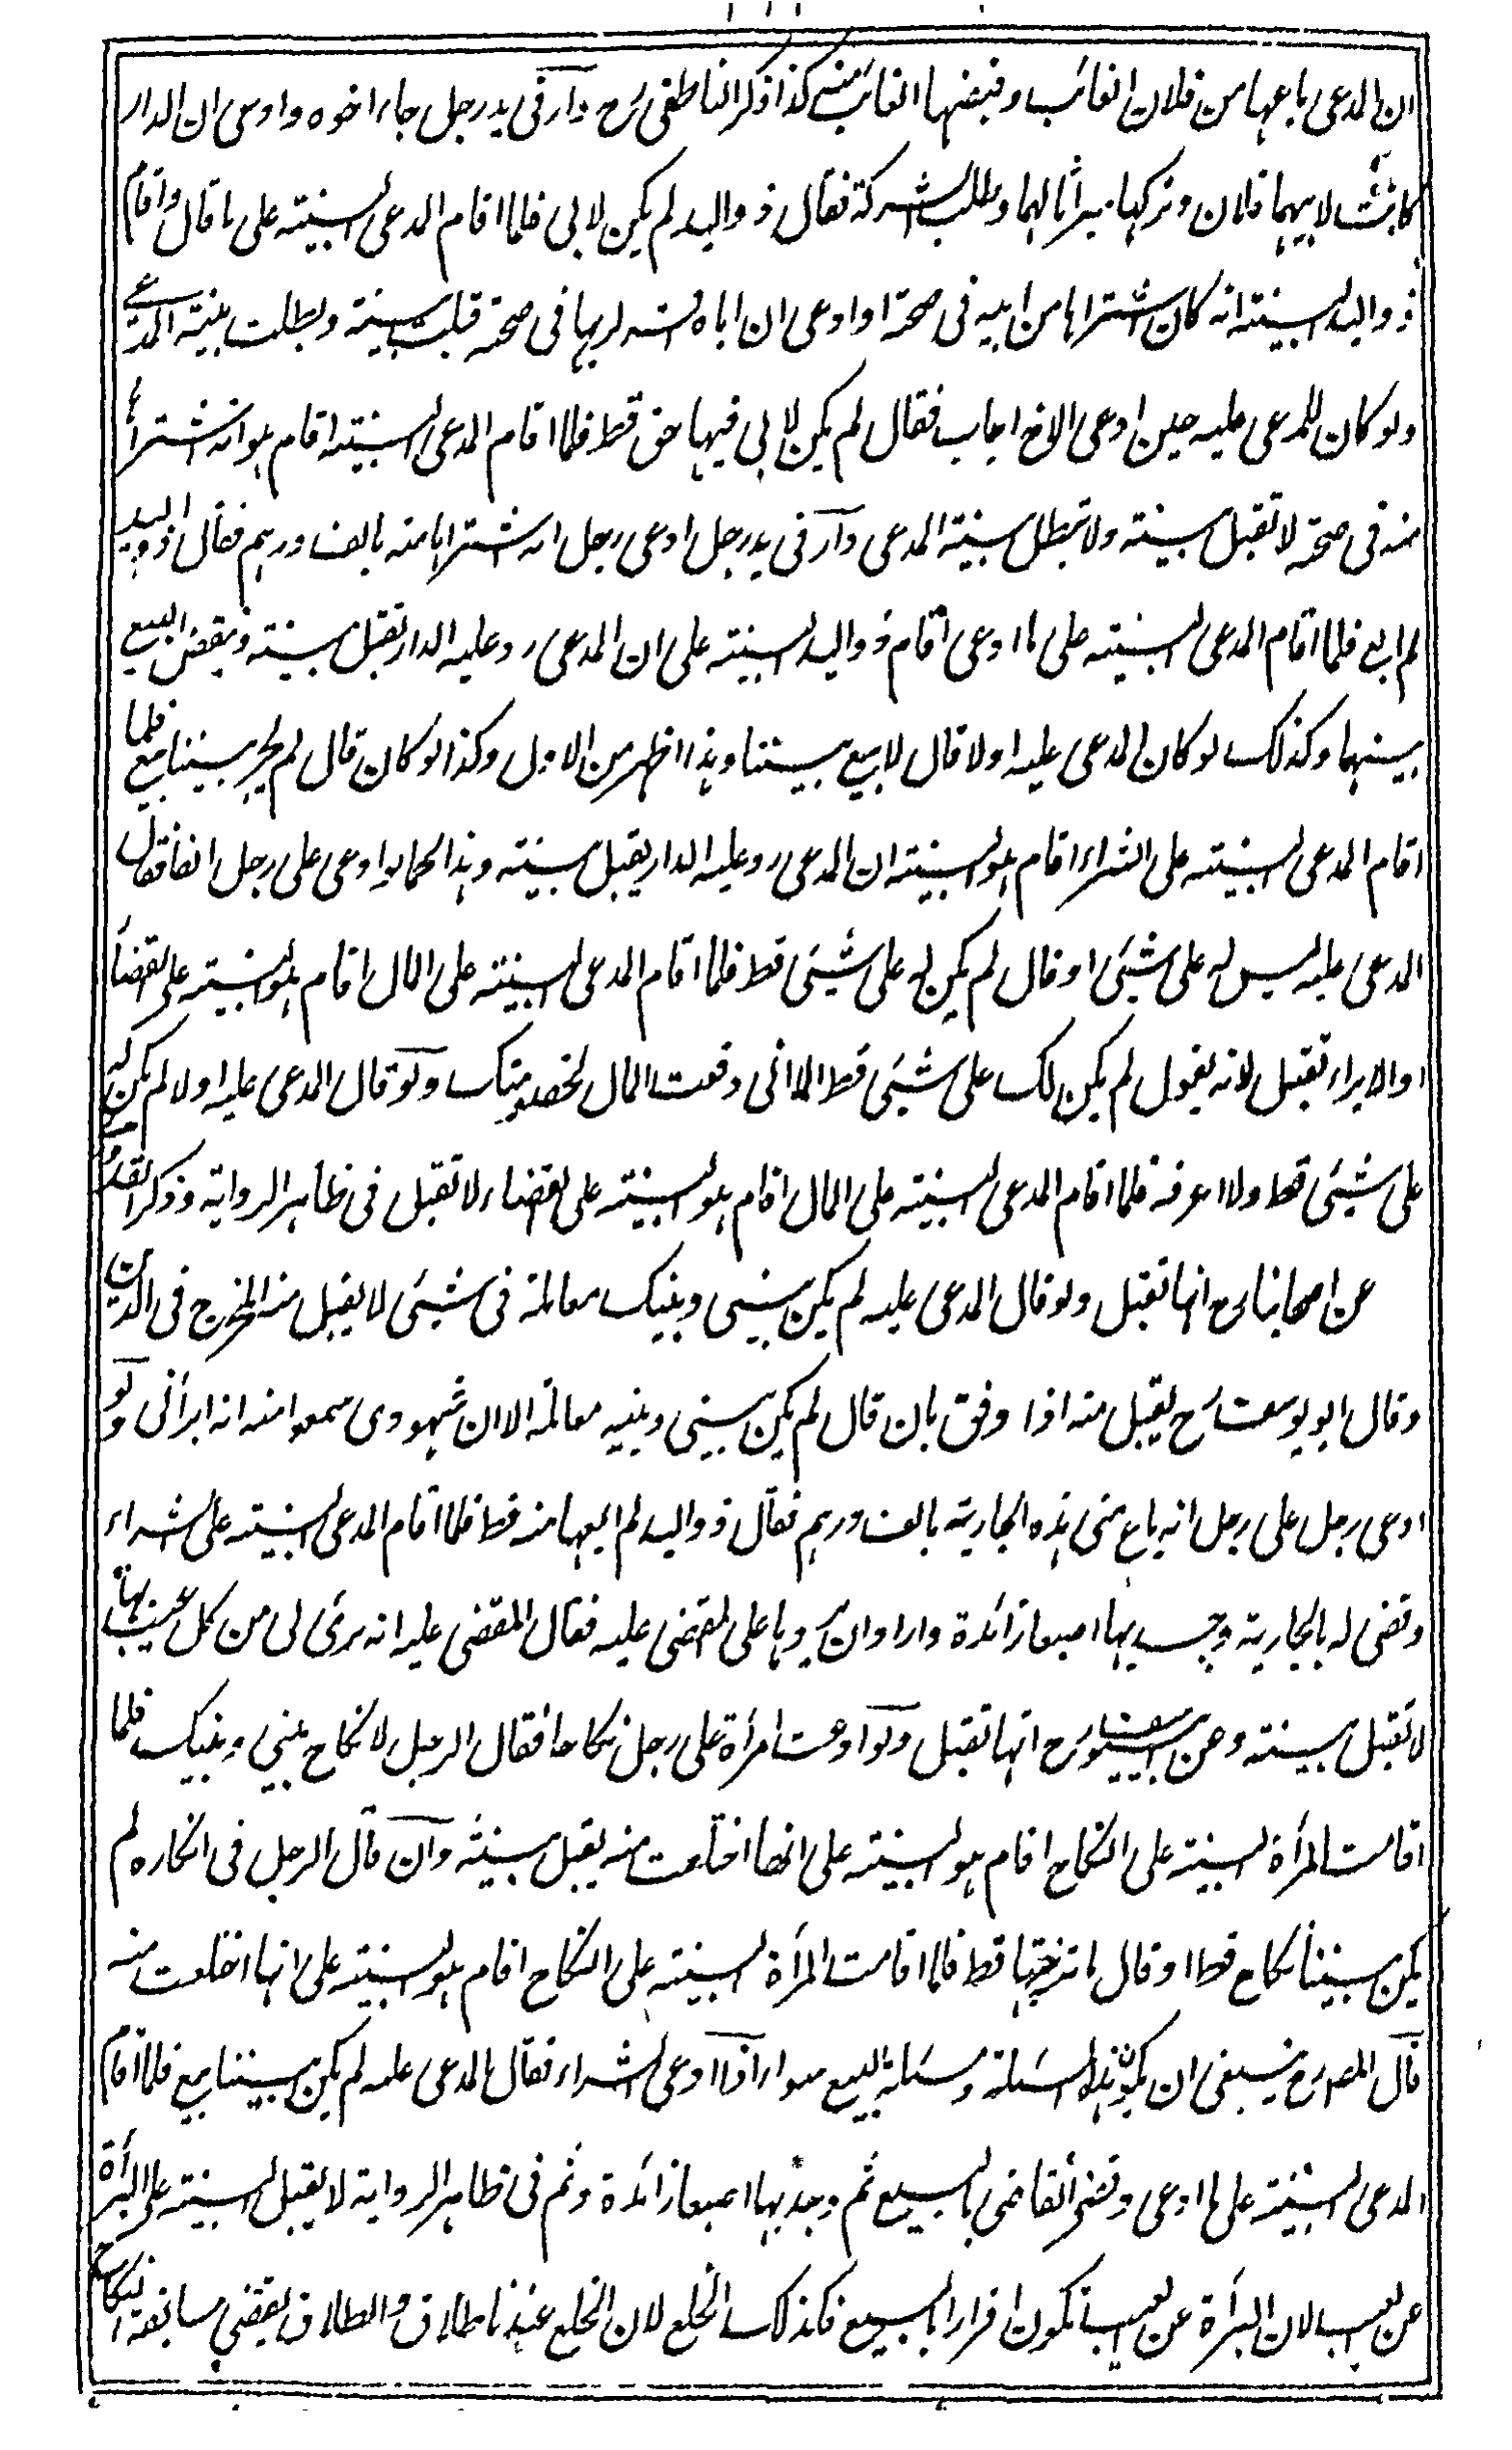 ان المدعى باعها من فلان الغائب وقبضها الغائب منه كذا ذكر الناطفى رح دار فى يد رجل جاء اخوه وادعى ان الدار
كانت لابيهما فلان وتركها ميراثا لهما وطلب الشركة فقال ذو اليد لم يكن لابى فلما اقام المدعى البينة على ما قال واقام
ذو اليد البينة انه كان اشتراها من ابيه فى صحته او ادعى ان اباه اقر له بها فى صحته قبلت بينته وبطلت بينة المدعى
ولو كان للمدعى عليه حين ادعى الاخ اجاب فقال لم يكن لابى فيها حق قط فلما اقام المدعى البينة اقام هو انه اشتراه
منه فى صحته لا تقبل بينته ولا تبطل بينة المدعى دار فى يد رجل ادعى رجل انه اشتراها منه بالف درهم فقال ذو اليد
لم ابع فلما اقام المدعى البينة على ما ادعى اقام ذو اليد البينة على ان المدعى رد عليه الدار تقبل بينته وينقض البيع
بينهما وكذلك لو كان المدعى عليه اولا قال لا بيع بيننا وهذا اظهر من الاول وكذا لو كان قال لم يجر بيننا بيع فلما
اقام المدعى البينة على الشراء اقام هو البينة ان المدعى رد عليه الدار يقبل بينته وهذا كما لو ادعى على رجل الفا فقال
المدعى عليه ليس له على شيئ او قال لم يكن له على شيئ قط فلما اقام المدعى البينة على المال اقام هو البينة على القضاء
او الابراء تقبل لانه يقول لم يكن لك على شيئ قط الا انى دفعت المال لخصومتك ولو قال المدعى عليه اولا لم يكن له
على شيئ قط ولا اعرفه فلما اقام المدعى البينة على المال اقام هو البينة على القضاء لا تقبل فى ظاهر الرواية وذكر القدورى
عن اصحابنا رح انها تقبل ولو قال المدعى عليه لم يكن بينى وبينك معاملة فى شيئ لا يقبل منه المخرج فى الدين
وقال ابو يوسف رح يقبل منه اذا وفق بان قال لم يكن بينى وبينه معاملة الا ان شهودى سمعوا منه انه ابرأنى ولو
ادعى رجل على رجل انه باع منى هذه الجارية بالف درهم فقال ذو اليد لم ابعها منه قط فلما اقام المدعى البينة على الشراء
وقضى له بالجارية وجد بها اصبعا زائدة واراد ان يردها على المقضى عليه فقال المقضى عليه انه برئ لى من كل عيب بها
لا تقبل بينته وعن ابى يوسف رح انها تقبل ولو ادعت امرأة على رجل نكاحا فقال الرجل لا نكاح بينى وبينك فلما
اقامت المرأة البينة على النكاح اقام هو البينة على انها اختلعت منه يقبل بينته وان قال الرجل فى انكاره لم
يكن بيننا نكاح قط او قال ما تزوجتها قط فلما اقامت المرأة البينة على النكاح اقام هو البينة على انها اختلعت منه
قال المص رح ينبغى ان يكون هذه المسئلة ومسئلة البيع سواء اذا ادعى الشراء فقال المدعى عليه لم يكن بيننا بيع فلما اقام
المدعى البينة على ما ادعى وقضى القاضى بالبيع ثم وجد بها اصبعا زائدة وثم فى ظاهر الرواية لا يقبل البينة على البرأة
عن العيب لان البرأة عن العيب تكون اقرارا بالبيع فكذلك الخلع لان الخلع عندنا طلاق والطلاق يقتضى سابقة النكاح